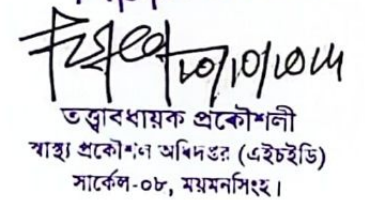 তত্ত্বাবধায়ক প্রকৌশলী
স্বাস্থ্য প্রকৌশল অধিদপ্তর (এইচইডি)
সার্কেল-০৮, ময়মনসিংহ।